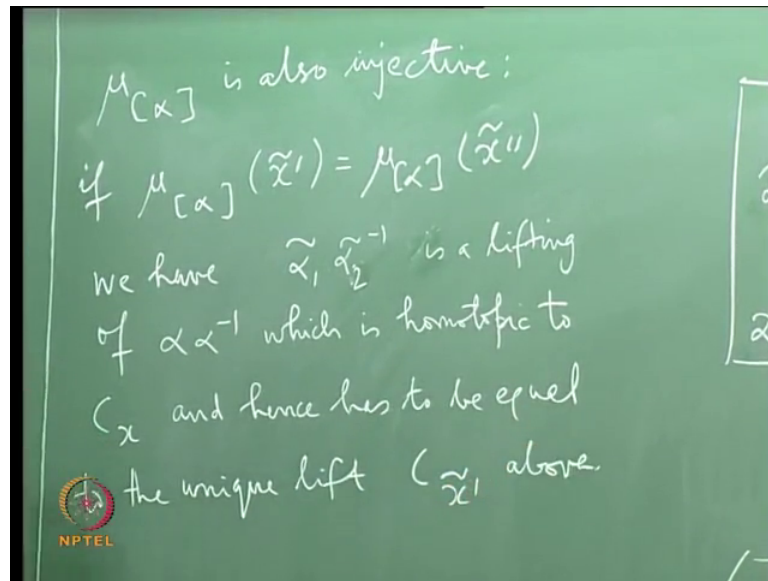 μ[α] is also injective:
if μ[α] (x̃') = μ[α] (x̃'')
we have α̃₁ α̃₂⁻¹ is a lifting
of α α⁻¹ which is homotopic to
Cₓ and hence has to be equal
to the unique lift C_x̃' above.
NPTEL